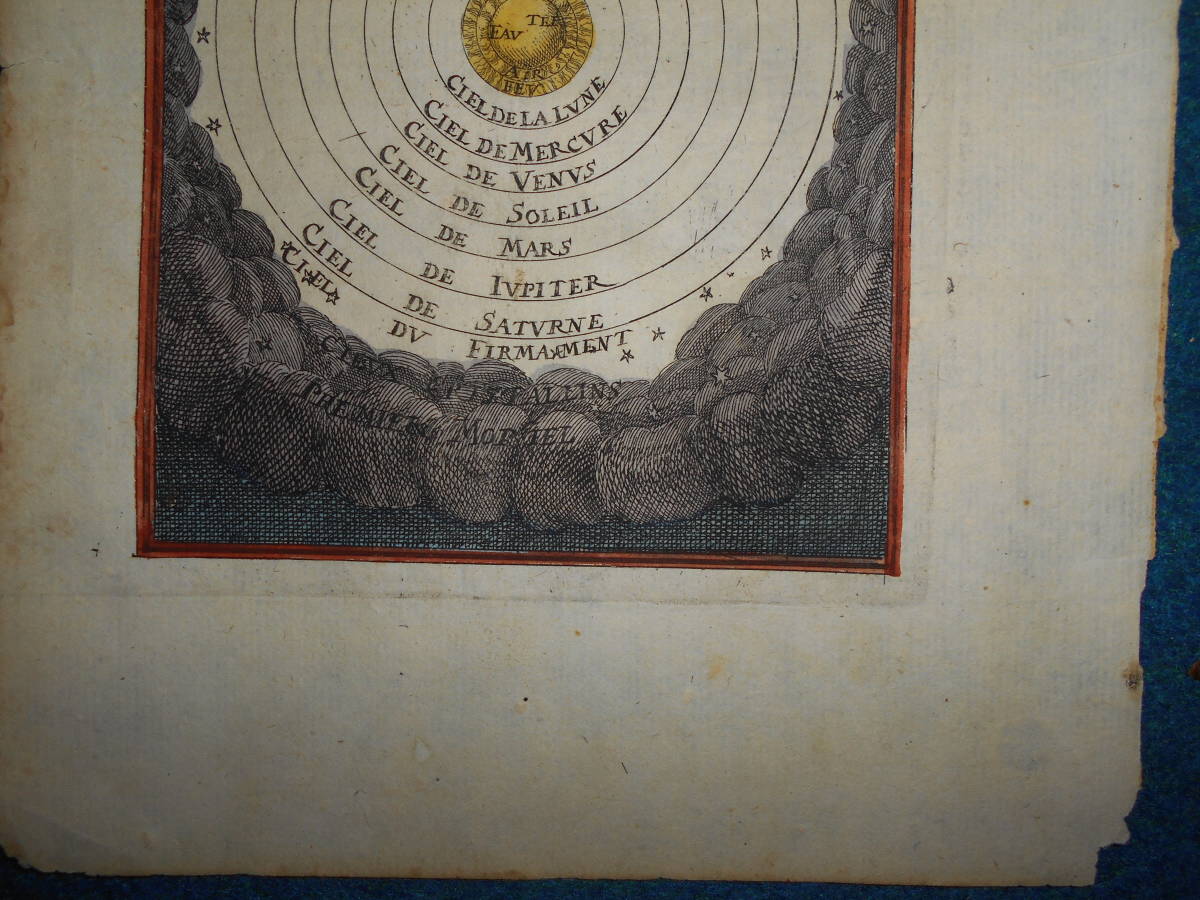 TER
EAV
AIR
FEV
CIEL DE LA LVNE
CIEL DE MERCVRE
CIEL DE VENVS
CIEL DE SOLEIL
CIEL DE MARS
CIEL DE IVPITER
CIEL DE SATVRNE
CIEL DV FIRMAMENT
PREMIER